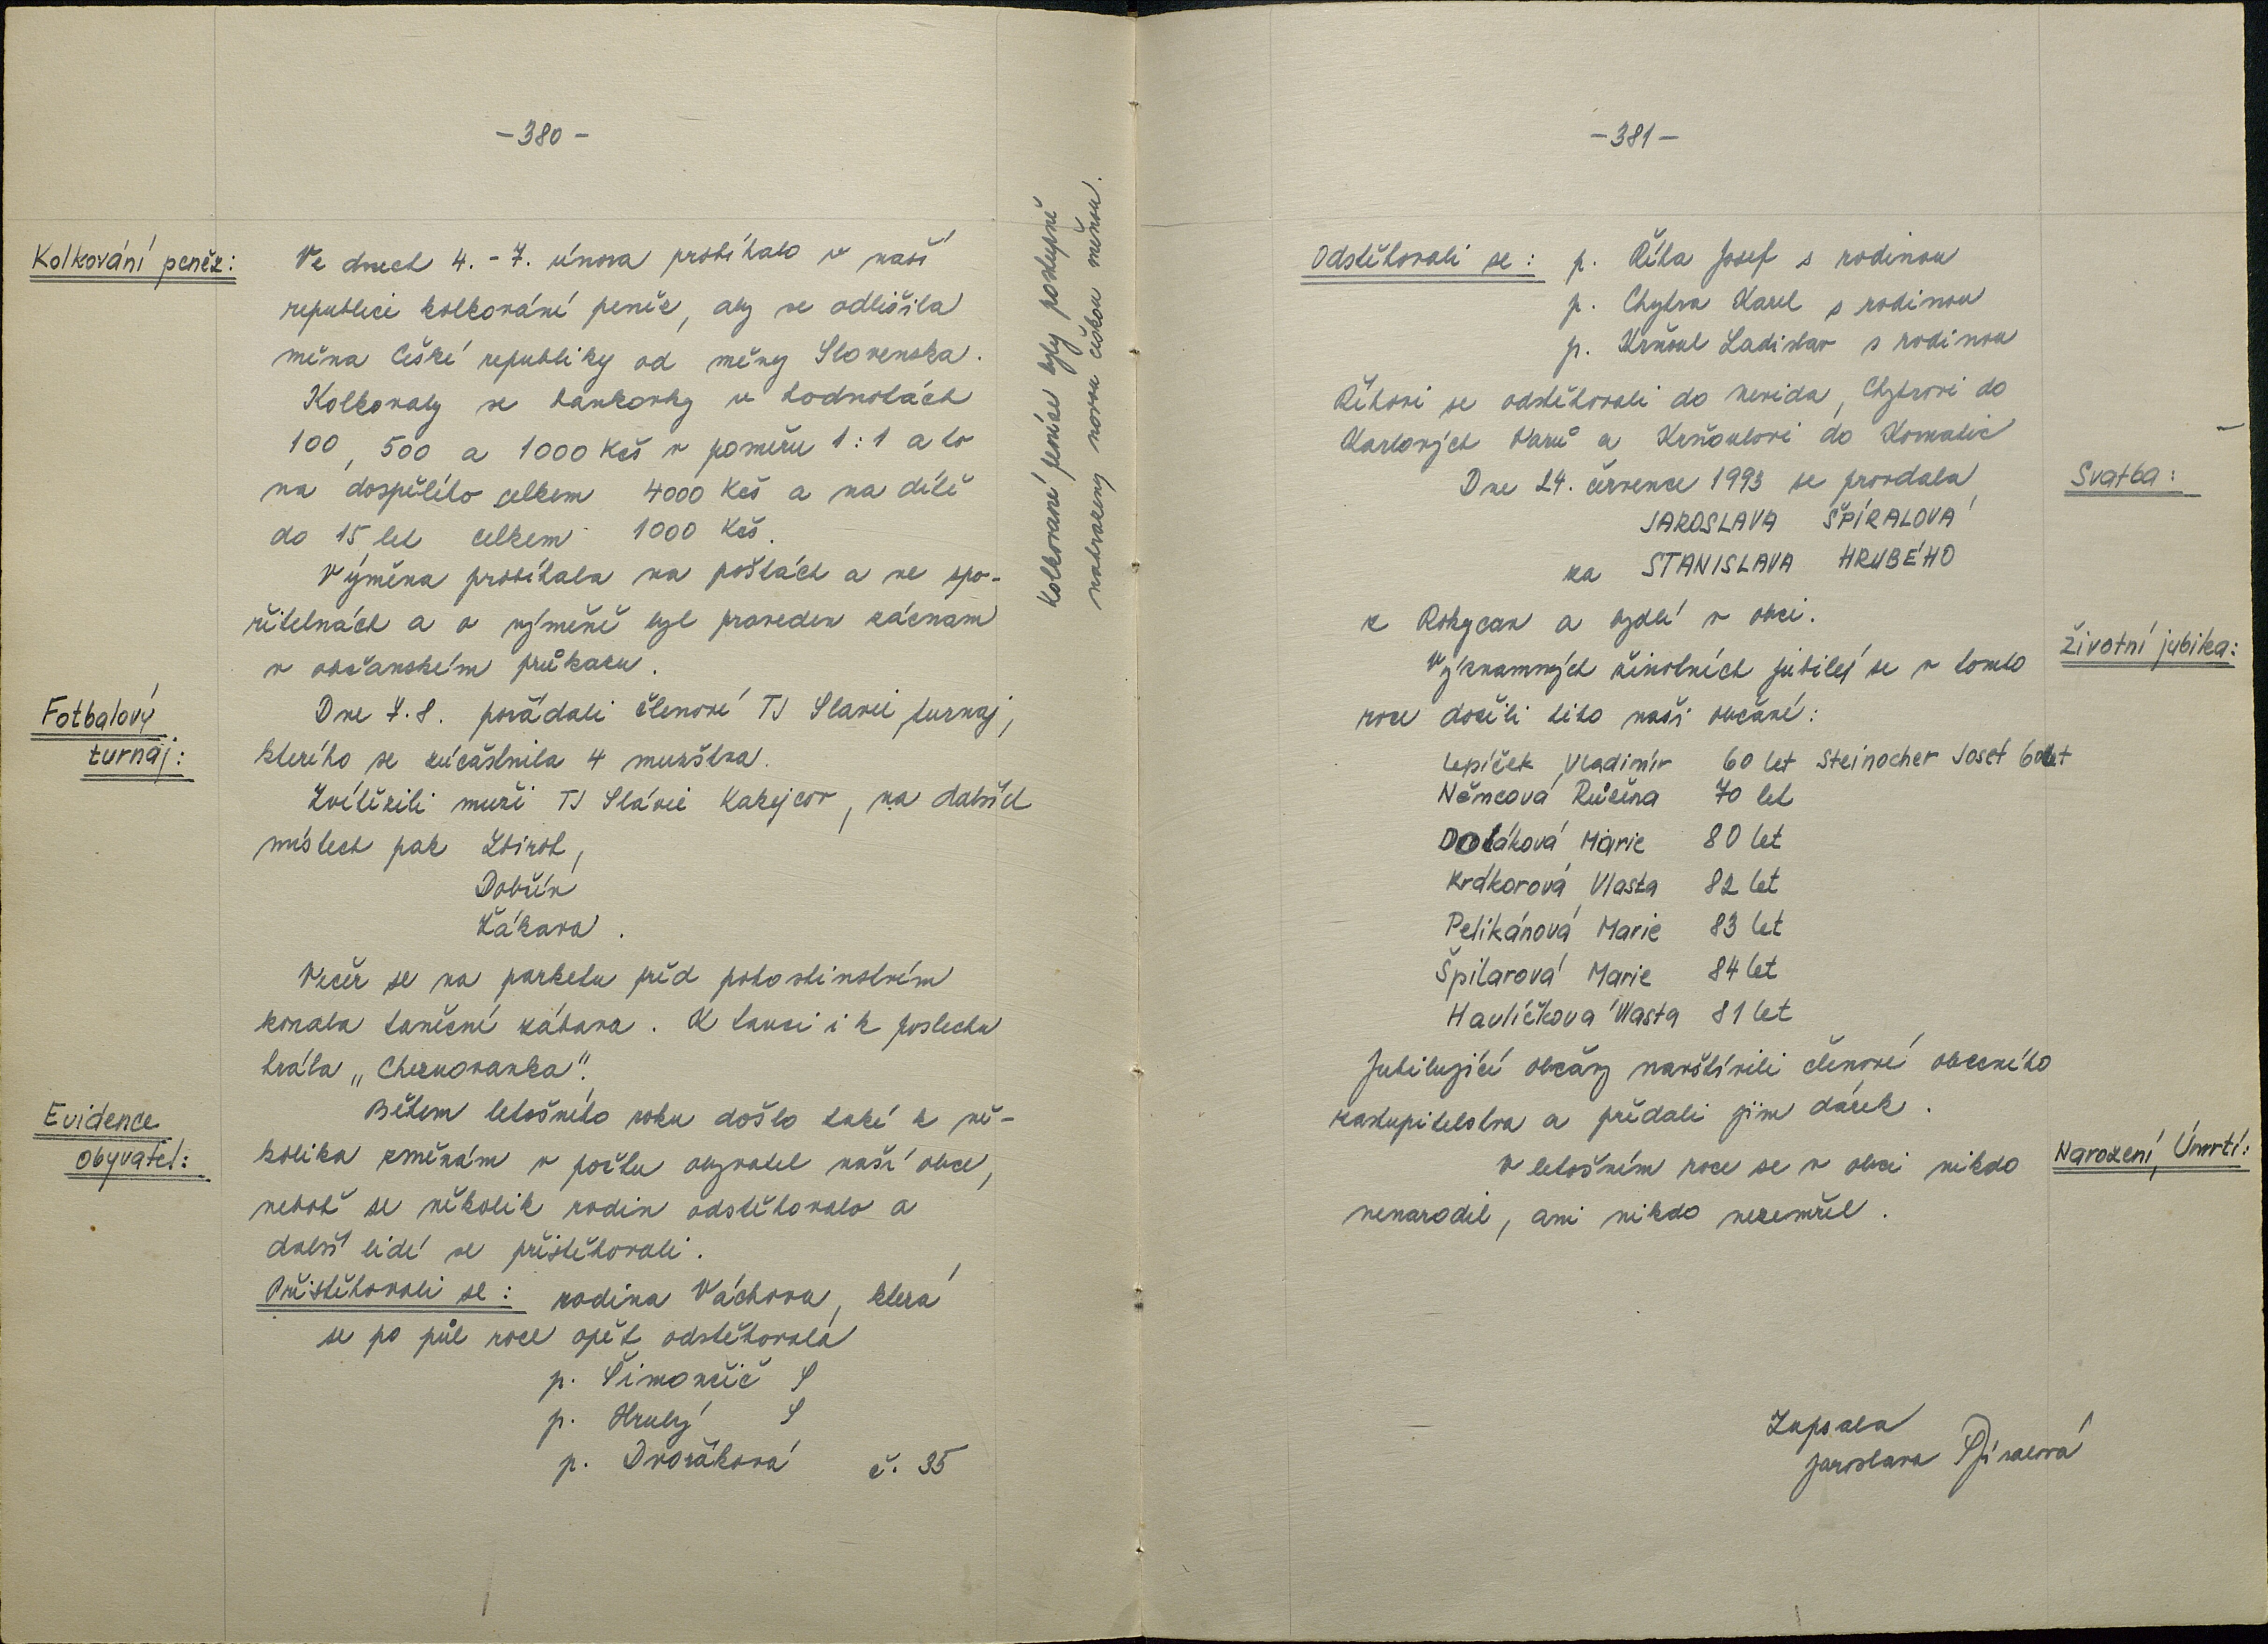 -380-
Kolkování peněz:
Ve dnech 4.-7. února probíhalo v naší
republice kolkování peněz, aby se odlišila
měna České republiky od měny Slovenska.
Kolkovaly se bankovky v hodnotách
100, 500 a 1000 Kčs v poměru 1:1 a to
na dospělého celkem 4000 Kčs a na dítě
do 15 let celkem 1000 Kčs.
Výměna probíhala na poštách a ve spo-
řitelnách a o výměně byl proveden záznam
v občanském průkazu.
Kolkované peníze byly postupně
nahrazeny novou českou měnou.
Fotbalový
turnaj:
Dne 7.8. pořádali členové TJ Slavie turnaj,
kterého se zúčastnila 4 mužstva.
Zvítězili muži TJ Slávie Kakejcov, na dalších
místech pak Zbiroh,
Dobřín
Kákava.
Večer se na parketu před pohostinstvím
konala taneční zábava. K tanci i k poslechu
hrála „Chernovanka".
Evidence
obyvatel:
Během letošního roku došlo také k ně-
kolika změnám v počtu obyvatel naší obce,
neboť se několik rodin odstěhovalo a
další lidé se přistěhovali.
Přistěhovali se: rodina Váchova, která
se po půl roce opět odstěhovala
p. Šimončič S
p. Hrubý S
p. Dvořáková č. 35
-381-
Odstěhovali se: p. Říha Josef s rodinou
p. Chytra Karel s rodinou
p. Krňoul Ladislav s rodinou
Říhovi se odstěhovali do Nevida, Chytrovi do
Karlových Varů a Krňoulovi do Kornatic
Svatba:
Dne 24. července 1993 se provdala
JAROSLAVA ŠPÍRALOVÁ
za STANISLAVA HRUBÉHO
z Rokycan a bydlí v obci.
Životní jubilea:
Významných životních jubileí se v tomto
roce dožili tito naši občané:
Lepíček Vladimír 60 let Steinocher Josef 60let
Němcová Růžena 70 let
Doláková Marie 80 let
Krdkorová Vlasta 82 let
Pelikánová Marie 83 let
Špilarová Marie 84 let
Havlíčková Vlasta 81 let
Jubilující občany navštívili členové obecního
zastupitelstva a předali jim dárek.
Narození, Úmrtí:
V letošním roce se v obci nikdo
nenarodil, ani nikdo nezemřel.
Zapsala
Jaroslava Špíralová